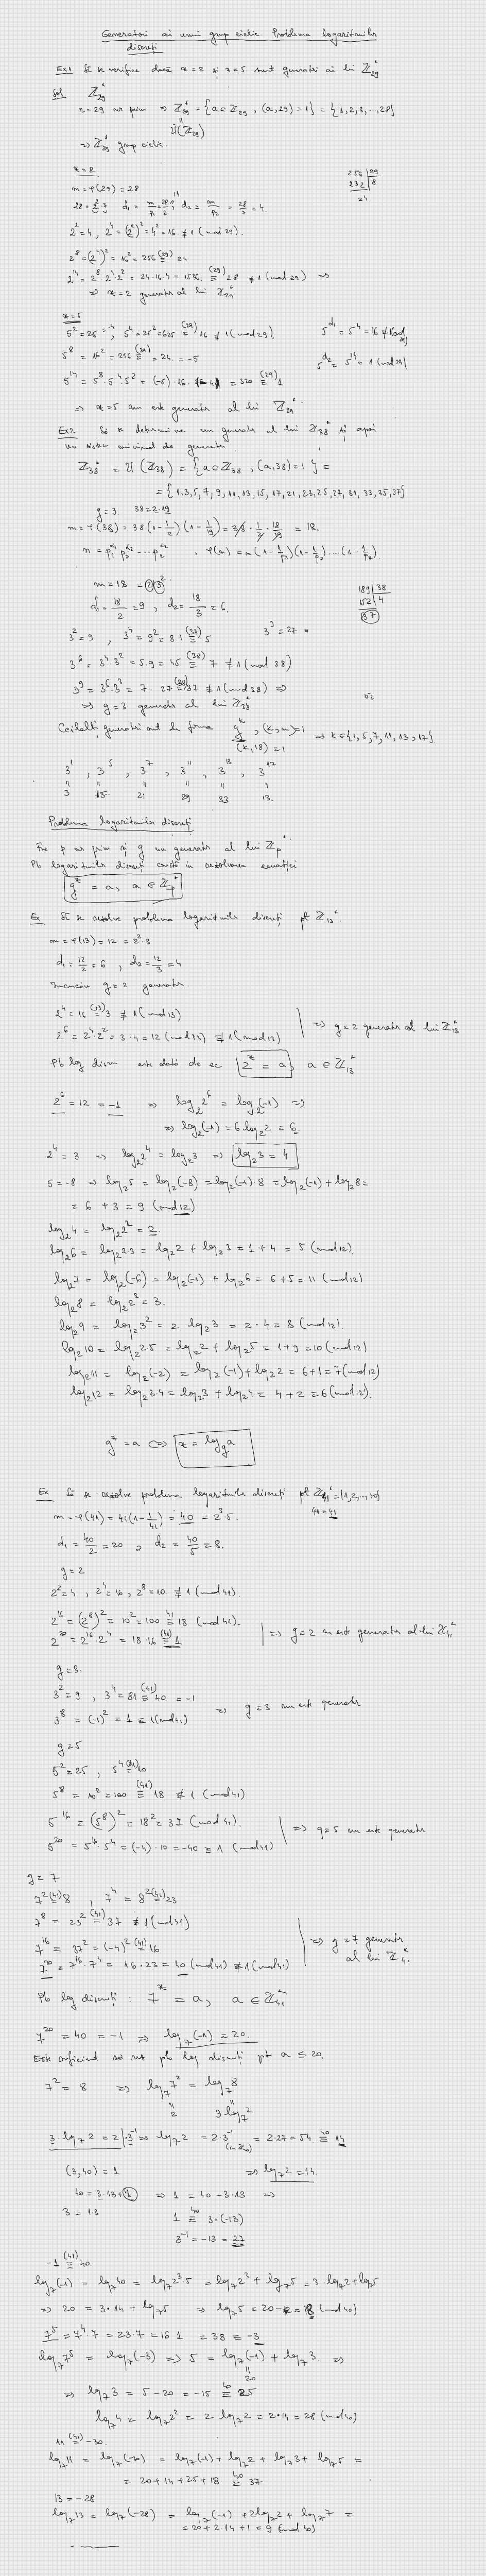 Generatori ai unui grup ciclic. Problema logaritmilor
discreți
Ex1 Să se verifice dacă x=2 și x=5 sunt generatori ai lui ℤ₂₉*
Sol ℤ₂₉*
n=29 nr prim ⇒ ℤ₂₉* = {a∈ℤ₂₉, (a,29)=1} = {1,2,3,...,28}
U(ℤ₂₉)
⇒ ℤ₂₉* grup ciclic.
x=2
m=φ(29)=28
256 | 29
232 | 8
24
28=2².7 d₁=m/p₁=28/2=14, d₂=m/p₂=28/7=4.
2²=4, 2⁴=(2²)²=4²=16 ≢1 (mod 29).
2⁸=(2⁴)²=16²=256 ≡(29) 24
2¹⁴=2⁸.2⁴.2²=24.16.4=1536 ≡(29) 28 ≢1 (mod 29) ⇒
⇒ x=2 generator al lui ℤ₂₉*
x=5
5²=25=-4, 5⁴=25²=625 ≡(29) 16 ≢1 (mod 29).
5^d₁=5⁴=16≢1(mod 29)
5⁸=16²=256 ≡(29) =24=-5
5^d₂=5¹⁴=1 (mod 29)
5¹⁴=5⁸.5⁴.5²=(-5).16.(-4)=320 ≡(29) 1
⇒ x=5 nu este generator al lui ℤ₂₉*
Ex2 Să se determine un generator al lui ℤ₃₈* și apoi
un sistem de generatori.
ℤ₃₈* = U(ℤ₃₈) = {a∈ℤ₃₈, (a,38)=1} =
={1,3,5,7,9,11,13,15,17,21,23,25,27,29,31,33,35,37}
g=3. 38=2.19
m=φ(38)=38(1-1/2)(1-1/19)=38.1/2.18/19=18.
n=p₁^α₁ p₂^α₂...p_r^α_r, φ(n)=n(1-1/p₁)(1-1/p₂)...(1-1/p_r).
m=18=2.3²
189 | 38
152 | 4
37
d₁=18/2=9, d₂=18/3=6.
3²=9, 3⁴=9²=81 ≡(38) 5 3³=27
3⁶=3⁴.3²=5.9=45 ≡(38) 7 ≢1 (mod 38)
3⁹=3⁶.3³=7.27 ≡(38) 37 ≢1 (mod 38) ⇒
⇒ g=3 generator al lui ℤ₃₈*
Ceilalți generatori sunt de forma g^k, (k,m)=1 ⇒ k∈{1,5,7,11,13,17}
(k,18)=1
3¹, 3⁵, 3⁷, 3¹¹, 3¹³, 3¹⁷
3 15 21 29 33 13.
Problema logaritmilor discreți
Fie p nr prim și g un generator al lui ℤ_p*.
Pb logaritmilor discreți constă în rezolvarea ecuației
g^x = a, a∈ℤ_p*
Ex Să se rezolve problema logaritmilor discreți pt ℤ₁₃*.
m=φ(13)=12=2².3
d₁=12/2=6, d₂=12/3=4
Încercăm g=2 generator
2⁴=16 ≡(13) 3 ≢1 (mod 13)
2⁶=2⁴.2²=3.4=12 (mod 13) ≢1 (mod 13) ⇒ g=2 generator al lui ℤ₁₃*
Pb log discr este dată de ec 2^x = a, a∈ℤ₁₃*
2⁶=12=-1 ⇒ log₂2⁶=log₂(-1) ⇒
⇒ log₂(-1)=6.log₂2=6.
2⁴=3 ⇒ log₂2⁴=log₂3 ⇒ log₂3=4
5=-8 ⇒ log₂5=log₂(-8)=log₂(-1).8=log₂(-1)+log₂8=
=6+3=9 (mod 12)
log₂4=log₂2²=2.
log₂6=log₂2.3=log₂2+log₂3=1+4=5 (mod 12)
log₂7=log₂(-6)=log₂(-1)+log₂6=6+5=11 (mod 12)
log₂8=log₂2³=3.
log₂9=log₂3²=2 log₂3=2.4=8 (mod 12)
log₂10=log₂2.5=log₂2+log₂5=1+9=10 (mod 12)
log₂11=log₂(-2)=log₂(-1)+log₂2=6+1=7 (mod 12)
log₂12=log₂3.4=log₂3+log₂4=4+2=6 (mod 12).
g^x=a ⇔ x=log_g a
Ex Să se rezolve problema logaritmilor discreți pt ℤ₄₁*={1,2,...,40}
m=φ(41)=41(1-1/41)=40=2³.5. 41=41
d₁=40/2=20, d₂=40/5=8.
g=2
2²=4, 2⁴=16, 2⁸=10 ≢1 (mod 41).
2¹⁶=(2⁸)²=10²=100 ≡(41) 18 (mod 41).
2²⁰=2¹⁶.2⁴=18.16 ≡(41) 1 ⇒ g=2 nu este generator al lui ℤ₄₁*
g=3.
3²=9, 3⁴=81 ≡(41) 40=-1
3⁸=(-1)²=1≡1(mod 41) ⇒ g=3 nu este generator
g=5
5²=25, 5⁴ ≡(41) 10
5⁸=10²=100 ≡(41) 18 ≢1 (mod 41)
5¹⁶=(5⁸)²=18²=37 (mod 41).
5²⁰=5¹⁶.5⁴=(-4).10=-40≡1 (mod 41) ⇒ g=5 nu este generator
g=7
7² ≡(41) 8, 7⁴=8² ≡(41) 23
7⁸=23² ≡(41) 37 ≢1 (mod 41)
7¹⁶=37²=(-4)² ≡(41) 16
7²⁰=7¹⁶.7⁴=16.23=40 (mod 41) ≢1 (mod 41) ⇒ g=7 generator al lui ℤ₄₁*
Pb log discreți: 7^x=a, a∈ℤ₄₁*
7²⁰=40=-1 ⇒ log₇(-1)=20.
Este suficient să rez pb log discreți pt a≤20.
7²=8 ⇒ log₇7²=log₇8
2 3log₇2
3 log₇2=2 |.3⁻¹ ⇒ log₇2=2.3⁻¹ (în ℤ₄₀) =2.27=54 ≡(40) 14
(3,40)=1 ⇒ log₇2=14
40=3.13+1 ⇒ 1=40-3.13 ⇒
3=1.3 1 ≡(40) 3.(-13)
3⁻¹=-13=27
-1 ≡(41) 40
log₇(-1)=log₇40=log₇2³.5=log₇2³+log₇5=3.log₇2+log₇5
⇒ 20=3.14+log₇5 ⇒ log₇5=20-2=18 (mod 40)
7⁵=7⁴.7=23.7=161=38=-3
log₇7⁵=log₇(-3) ⇒ 5=log₇(-1)+log₇3 ⇒
20
⇒ log₇3=5-20=-15 ≡(40) 25
log₇4=log₇2²=2 log₇2=2.14=28 (mod 40)
11 ≡(41) -30.
log₇11=log₇(-30)=log₇(-1)+log₇2+log₇3+log₇5=
=20+14+25+18 ≡(40) 37
13=-28
log₇13=log₇(-28)=log₇(-1)+2log₇2+log₇7=
=20+2.14+1=9 (mod 40)